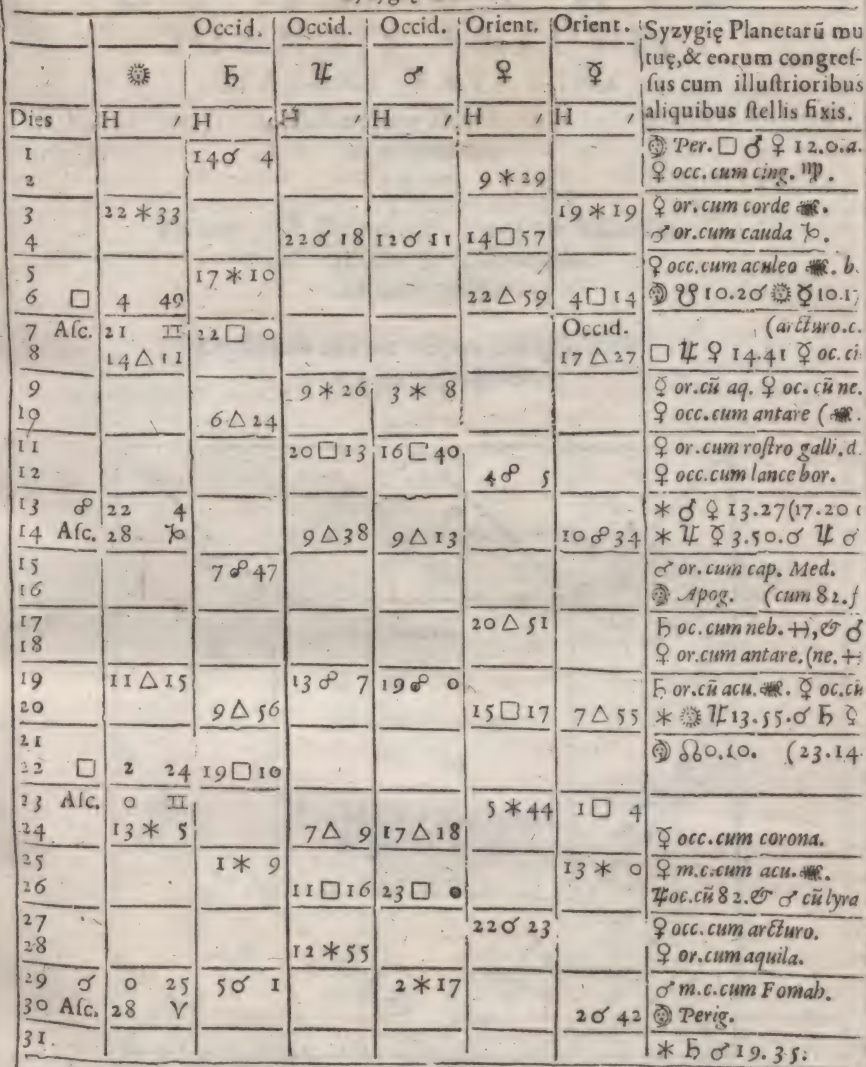 Occid. Occid. Occid. Orient. Orient. Syzygię Planetarũ mu
☉ ♄ ♃ ♂ ♀ ☿ tuę,& eorum congres-
sus cum illuſtrioribus
Dies H ′ H ′ H ′ H ′ H ′ H ′ aliquibus ſtellis fixis.
1 14 ☌ 4 ☽ Per. □ ♂ ♀ 12.0.a.
2 9 ✶ 29 ♀ occ. cum cing. ♍.
3 22 ✶ 33 19 ✶ 19 ♀ or. cum corde ♏.
4 22 ☌ 18 12 ☌ 11 14 □ 57 ♂ or. cum cauda ♑.
5 17 ✶ 10 ♀ occ. cum aculeo ♏. b.
6 □ 4 49 22 △ 59 4 □ 14 ☽ ☋ 10.20 ☌ ☉ ☿ 10.17
7 Aſc. 21 ♊ 22 □ 0 Occid. (arcturo.c.
8 14 △ 11 17 △ 27 □ ♃ ♀ 14.41 ☿ oc. ci
9 9 ✶ 26 3 ✶ 8 ☿ or. cũ aq. ♀ oc. cũ ne.
10 6 △ 24 ♀ occ. cum antare (♏.
11 20 □ 13 16 □ 40 ♀ or. cum roſtro galli. d.
12 4 ☍ 5 ♀ occ. cum lance bor.
13 ☍ 22 4 ✶ ♂ ♀ 13.27 (17.20
14 Aſc. 28 ♑ 9 △ 38 9 △ 13 10 ☍ 34 ✶ ♃ ☿ 3.50. ☌ ♃ ♂
15 7 ☍ 47 ♂ or. cum cap. Med.
16 ☽ Apog. (cum 82. ſ
17 20 △ 51 ♄ oc. cum neb. ♐, & ♂
18 ♀ or. cum antare. (ne. ♐
19 11 △ 15 13 ☍ 7 19 ☍ 0 ♄ or. cũ acu. ♏. ☿ oc. cũ
20 9 △ 56 15 □ 17 7 △ 55 ✶ ☉ ♃ 13.55. ☌ ♄ ♀
21 ☽ ☊ 0.10. (23.14
22 □ 2 24 19 □ 10
23 Aſc. 0 ♊ 5 ✶ 44 1 □ 4
24 13 ✶ 5 7 △ 9 17 △ 18 ☿ occ. cum corona.
25 1 ✶ 9 13 ✶ 0 ♀ m.c. cum acu. ♏.
26 11 □ 16 23 □ 0 ♃ oc. cũ 82. & ♂ cũ lyra
27 22 ☌ 23 ♀ occ. cum arcturo.
28 12 ✶ 55 ♀ or. cum aquila.
29 ☌ 0 25 5 ☌ 1 2 ✶ 17 ♂ m.c. cum Fomah.
30 Aſc. 28 ♈ 2 ☌ 42 ☽ Perig.
31. ✶ ♄ ♂ 19.35.